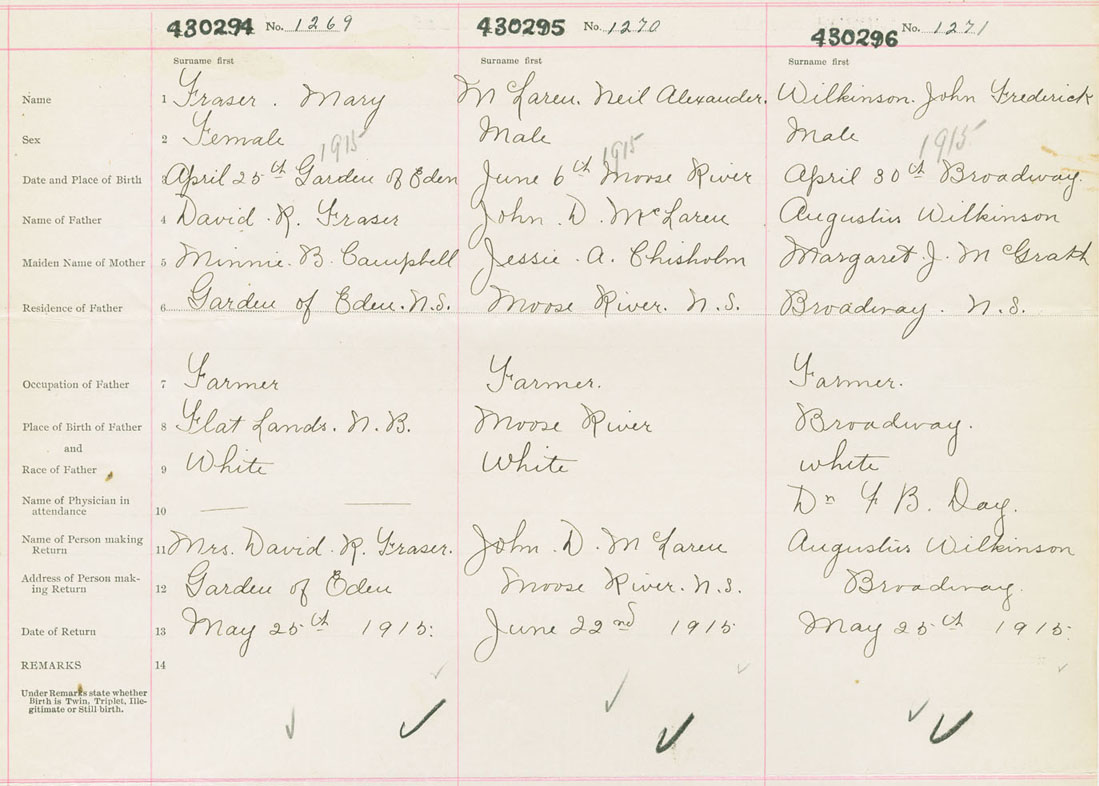 430294 No. 1269 430295 No. 1270 430296 No. 1271
Surname first Surname first Surname first
Name 1 Fraser. Mary M Laren. Neil Alexander. Wilkinson. John Frederick
Sex 2 Female Male Male
1915 1915 1915
Date and Place of Birth 3 April 25th Garden of Eden June 6th Moose River April 30th Broadway.
Name of Father 4 David. R. Fraser John. D. McLaren Augustus Wilkinson
Maiden Name of Mother 5 Minnie. B. Campbell Jessie. A. Chisholm Margaret. J. McGrath
Residence of Father 6 Garden of Eden. N.S. Moose River. N.S. Broadway. N.S.
Occupation of Father 7 Farmer Farmer. Farmer.
Place of Birth of Father 8 Flat Lands. N.B. Moose River Broadway.
and
Race of Father 9 White White white
Name of Physician in
attendance 10 — — Dr F B. Day.
Name of Person making
Return 11 Mrs. David. R. Fraser. John. D. M Laren Augustus Wilkinson
Address of Person mak-
ing Return 12 Garden of Eden Moose River. N.S. Broadway.
Date of Return 13 May 25th 1915. June 22nd 1915 May 25th 1915.
REMARKS 14
Under Remarks state whether
Birth is Twin, Triplet, Ille-
gitimate or Still-birth.